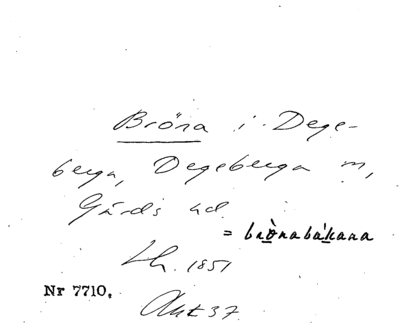 Bröna i Dege-
berga, Degeberga m,
Gärds hd
= brònabákana
Lh. 1851
Nr 7710.
Akt 37